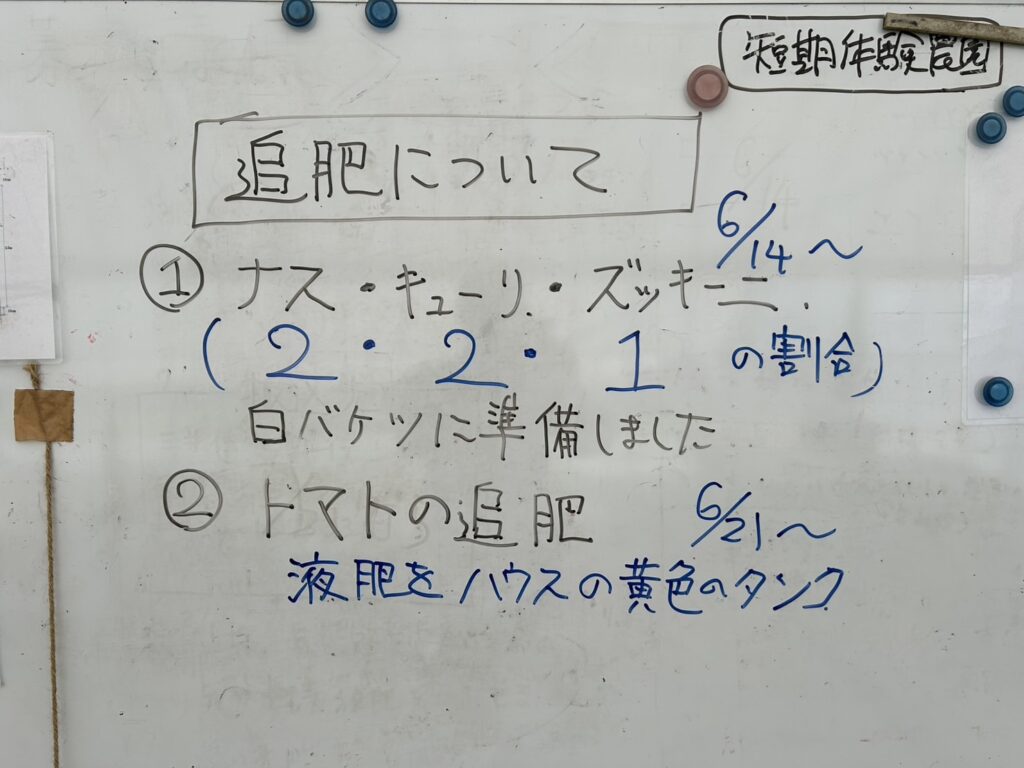 短期体験農園
追肥について
6/14〜
① ナス・キューリ・ズッキーニ.
(2・2・1の割合)
白バケツに準備しました
② トマトの追肥 6/21〜
液肥をハウスの黄色のタンク